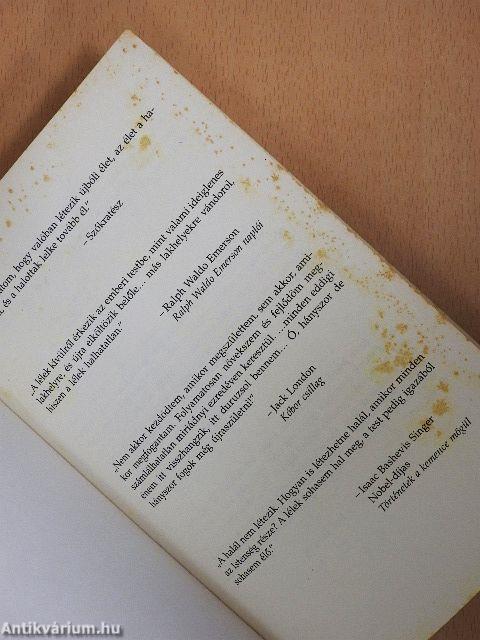 hogy valóban létezik újbóli élet, az élet a ha-
és a halottak lelke tovább él."
–Szókratész
„A lélek kívülről érkezik az emberi testbe, mint valami ideiglenes
lakhelyre, és újra elköltözik belőle... más lakhelyekre vándorol,
hiszen a lélek halhatatlan."
–Ralph Waldo Emerson
Ralph Waldo Emerson naplói
„Nem akkor kezdődtem, amikor megszülettem, sem akkor, ami-
kor megfogantam. Folyamatosan növekszem és fejlődöm meg-
számlálhatatlan miriádnyi ezredéven keresztül. ...minden eddigi
énem itt visszhangzik, itt duruzsol bennem... Ó, hányszor de
hányszor fogok még újraszületni!"
–Jack London
Kóbor csillag
„A halál nem létezik. Hogyan is létezhetne halál, amikor minden
az Istenség része? A lélek sohasem hal meg, a test pedig igazából
sohasem élő."
–Isaac Bashevis Singer
Nobel-díjas
Történetek a kemence mögül
Antikvárium.hu